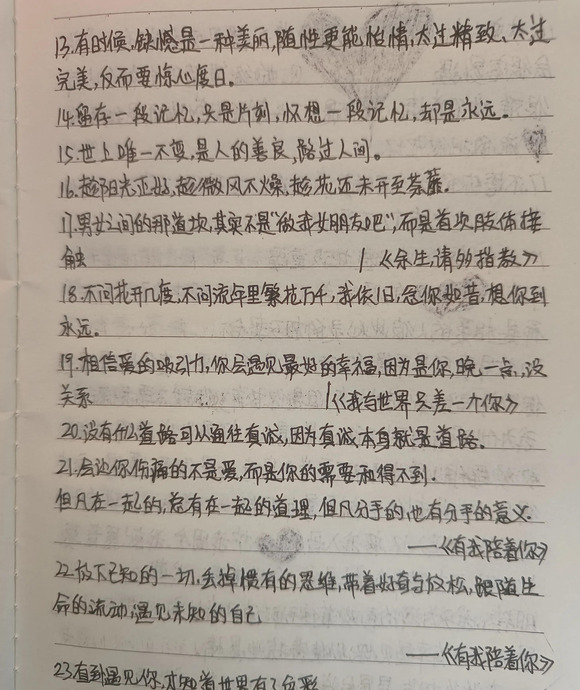 13.有时候,缺憾是一种美丽,随性更能怡情,太过精致、太过
完美,反而要惊心度日。
14.留存一段记忆,只是片刻,怀想一段记忆,却是永远。
15.世上唯一不变,是人的善良,路过人间。
16.趁阳光正好,趁微风不燥,趁花还未开至荼蘼。
17.男女之间的那道坎,其实不是"做我女朋友吧",而是首次肢体接
触 | 《余生,请多指教》
18.不问花开几度,不问流年里繁花万千,我依旧,念你如昔,想你到
永远。
19.相信爱的吸引力,你会遇见最好的幸福,因为是你,晚一点,没
关系 |《我与世界只差一个你》
20.没有什么道路可以通往真诚,因为真诚本身就是道路。
21.会让你伤痛的不是爱,而是你的需要和得不到.
但凡在一起的,总有在一起的道理,但凡分手的,也有分手的意义.
——《有我陪着你》
22.放下已知的一切,去掉惯有的思维,带着好奇与放松,跟随生
命的流动,遇见未知的自己
——《有我陪着你》
23.直到遇见你,才知道世界有了色彩